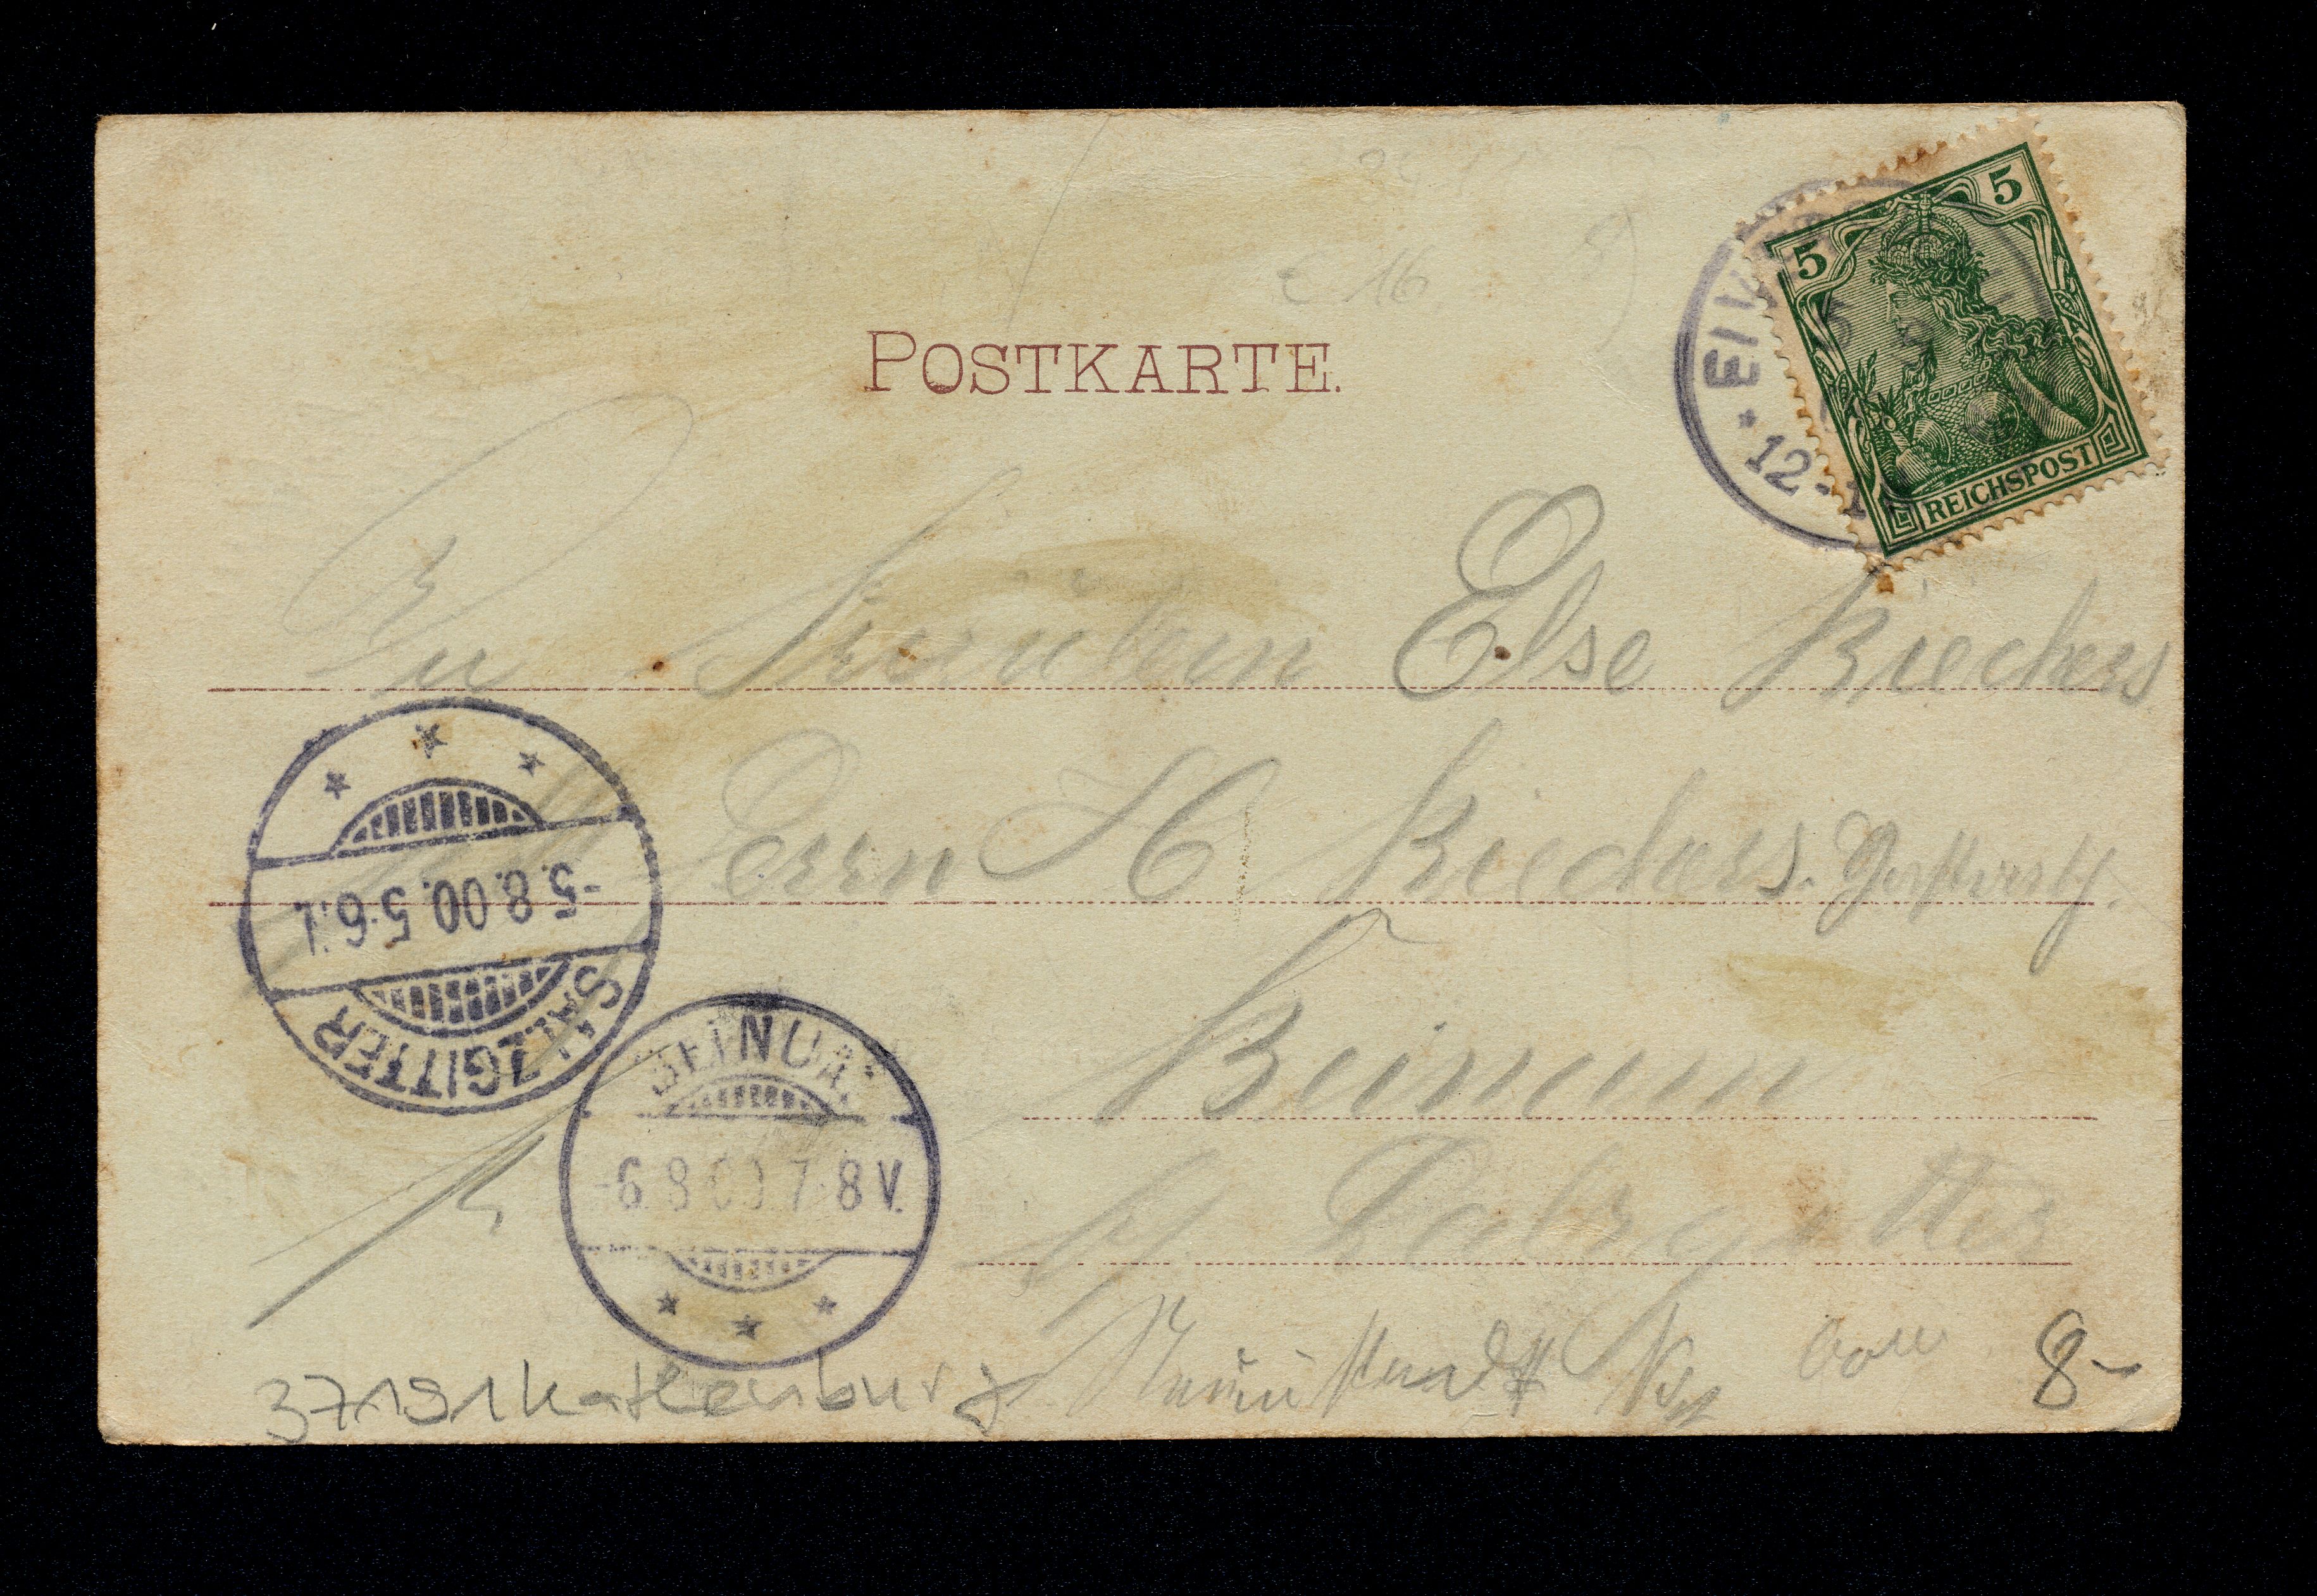 € 16
POSTKARTE.
5 5
REICHSPOST
12-1
Fräulein Else Rieckers
Herrn H Rieckers.
Beinum
b/ Salzgitter
SALZGITTER
-5.8.00.5-6.N.
BEINUM
-6.8.00.7-8V.
37191 Katlenburg
8-